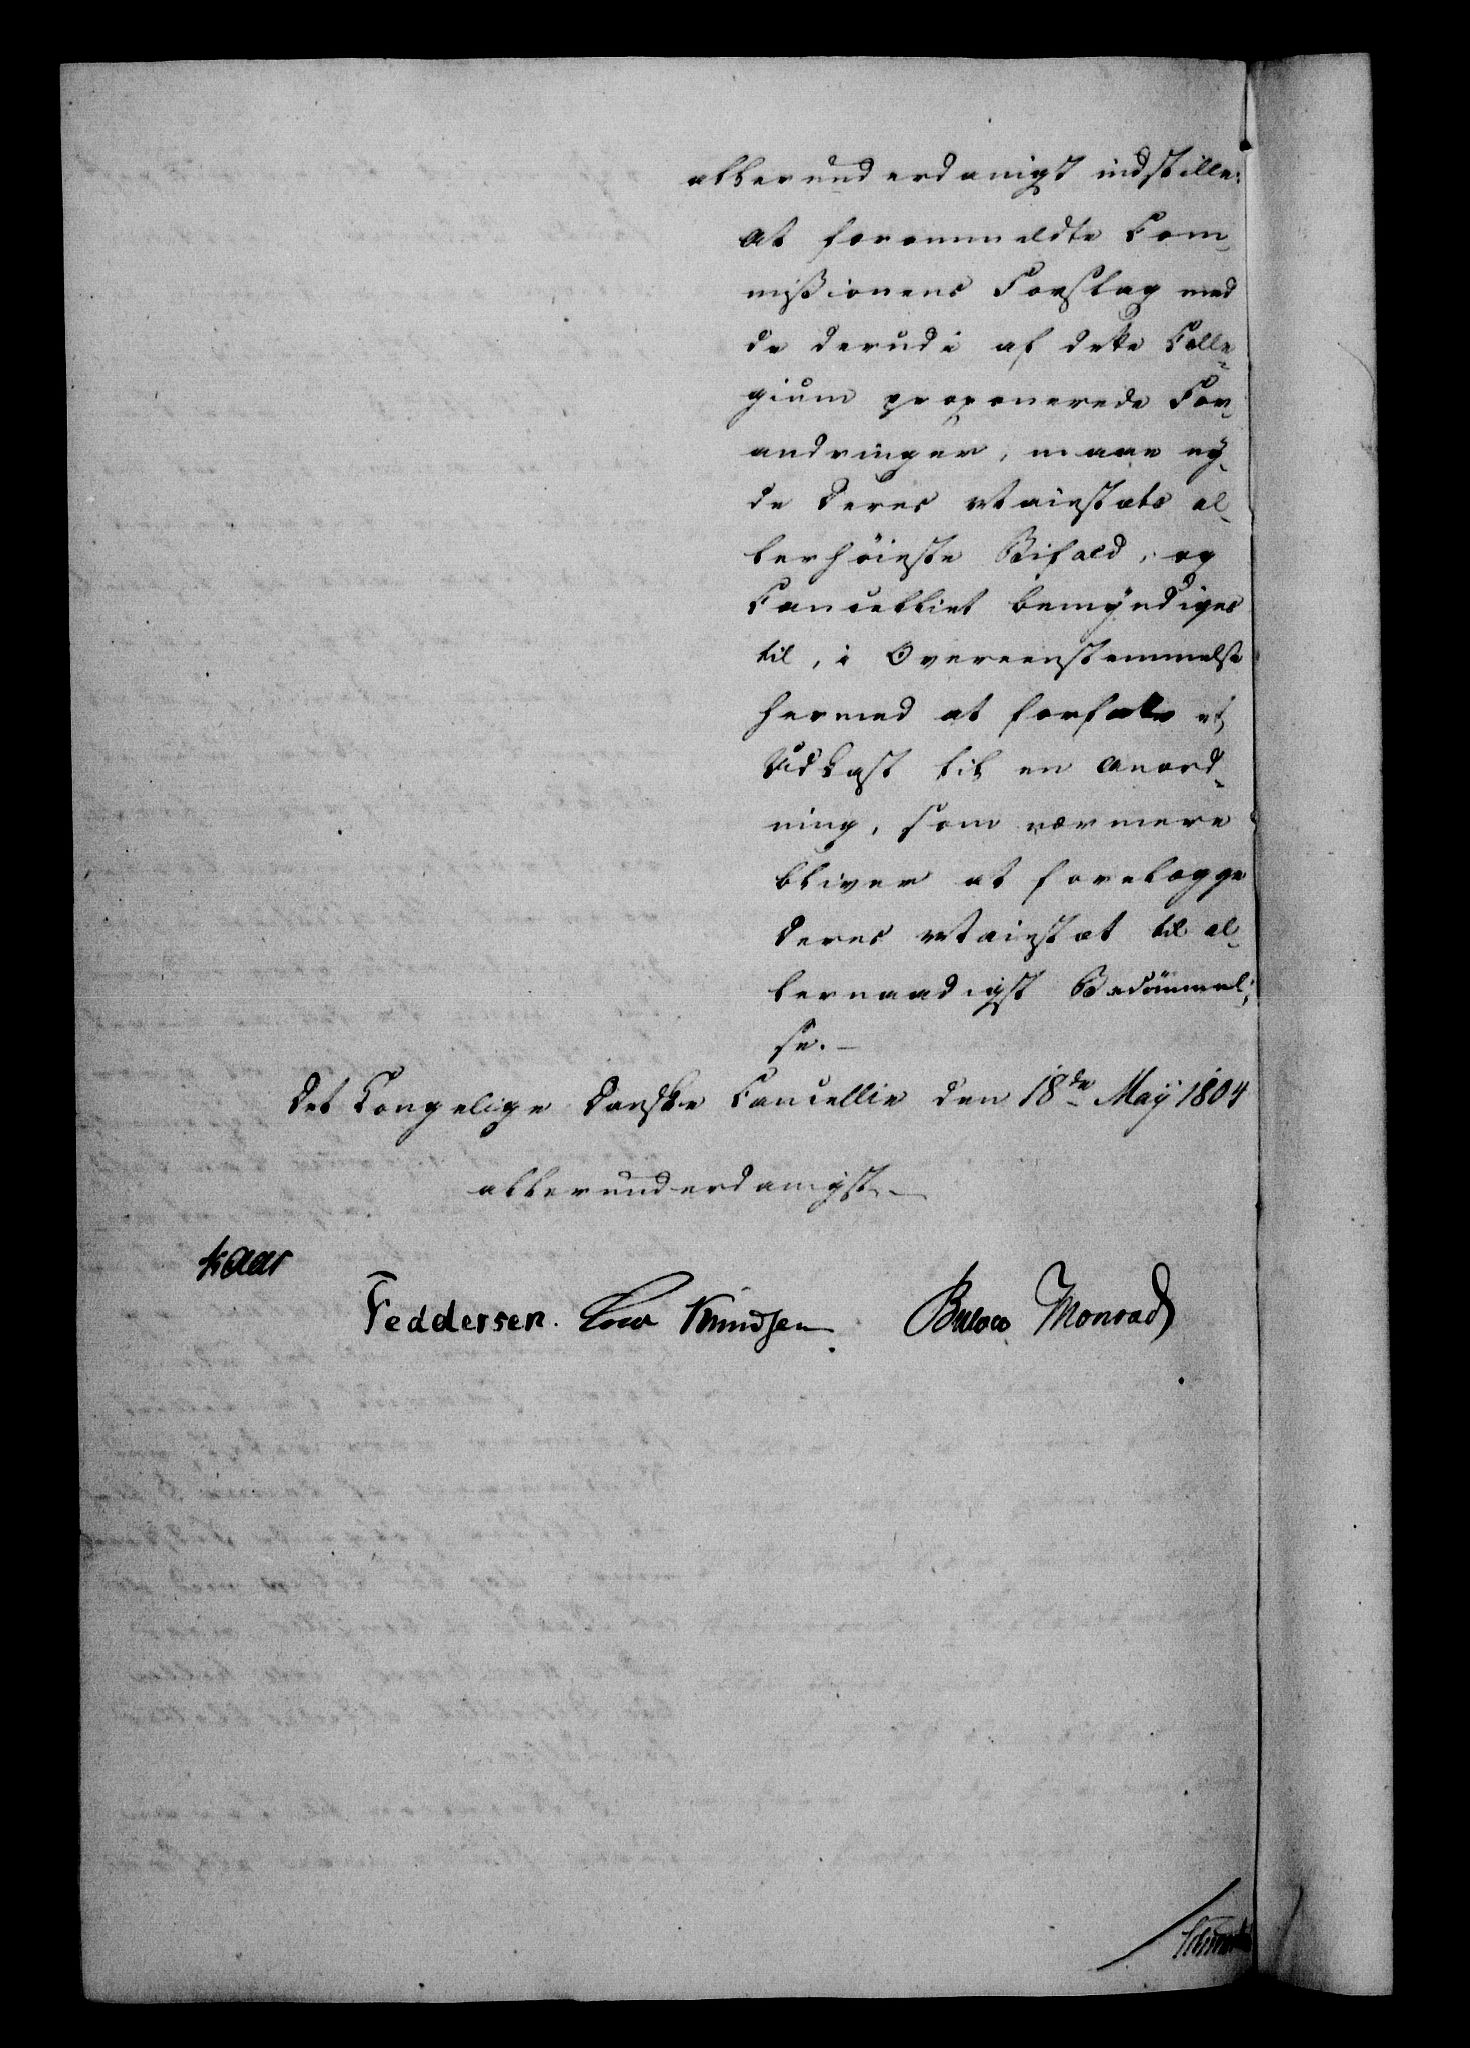 allerunderdanigst indstille:
at forommeldte Com-
missionens Forslag med
de derudi af dette Colle-
gium proponerede For-
andringer, maae ny-
de Deres Maiestæts al-
lerhöieste Bifald, og
Cancelliet bemyndiges
til, i Overeenstemmelse
hermed at forfatte et
Udkast til en Anord-
ning, som nærmere
bliver at forelægge
Deres Maiestæt til al-
lernaadigst Bedömmel-
se. -
Det Kongelige Danske Cancellie den 18de Maÿ 1804
allerunderdanigst
Kaas
Feddersen. Cold Knudsen. Bülow Monrad